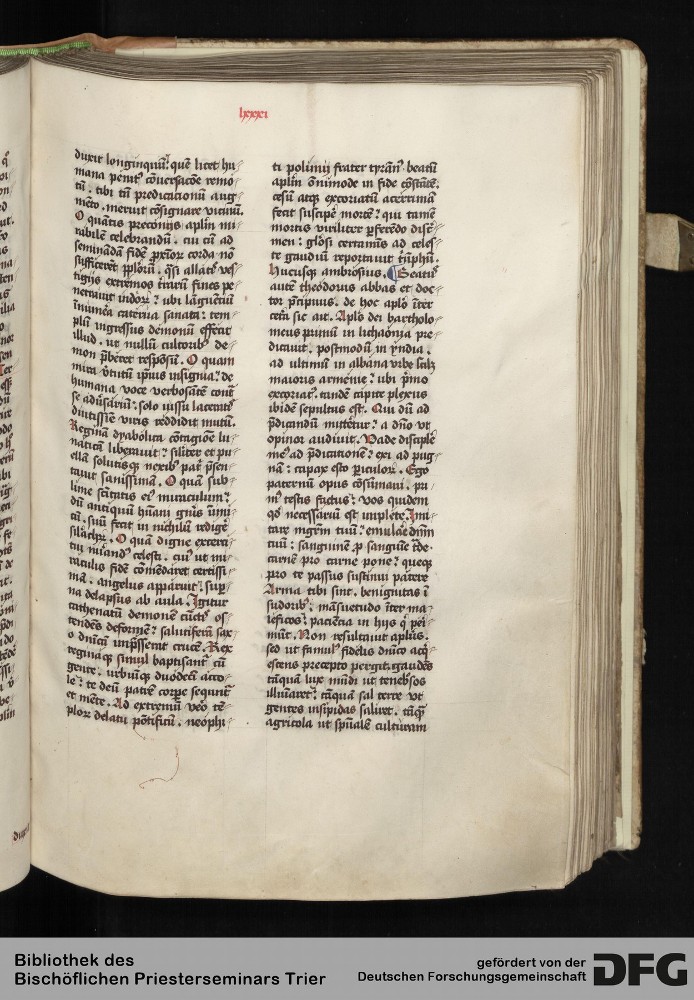 lxxxi
duxit longinquū. quē licet hu
mana penit⁹ cōuersacōe remo
tū. tibi tn̄ predicacionū aug
mēto. meruit cōsignare vicinū.
O quātis preconijs apl̄in mi
rabile celebrandū. cui cū ad
seminādā fidē prior corda nō
sufficerēt
tigijs extremos t̄rarū fines pe
netrauit indor. ubi lāguētiū
inumēa caterua sanata. tem
plū ingressus demonū effecit
illud. ut nullū cultorib⁹ de
mon p̄beret respōsū. O quam
mira v̄tutū ip̄ius insignia. de
humana voce verbosātē cont̄
se adūsariū. solo iussu lacerāt⁹
diutissīe viris reddidit mutū.
Reginā dyabolica cōtagiōe lu
naticā liberauit. siliter et pu
ellā solutisq nexib⁹ pat̄ p̄sen
tauit sanissimā. O quā sub
lime sc̄titatis ei⁹ miraculum.
dū antiquū hūani gn̄is īimi
cū. suū fecit in nichilū redige
silac̄hr. O quā digne exerci
tui celesti. cui⁹ ut mi
raculis fidē cōmēdaret certissi
mā. angelus apparuit. sup̄
na delapsus ab aula. Igitur
cathenatū demonē cūctis os
tendēs deformē. salutiferā sax
o dn̄icū imp̄sserat crucē. Rex
reginaq simul baptisant̄ cū
gente. urbiūq duodecī acco
le. te deū patrē corpe sequnt̄
et mēte. Ad extremū veo tē
plor delatu pōtificū. neophi
ti polimij frater tyrān⁹ beatū
apl̄m ōnimode in fide cōstātē.
cesū atq excoriatū acerrimā
fecit suscipē mortē. qui tamē
mortis viriliter p̄ferēdo discri
men. glōsi certamīs ad celes
te gaudiū reportauit triūphū.
Hucusq ambrosius. Beatus
autē theodorus abbas et doc
tor p̄cipuus. de hoc aplo īter
cetā sic ait. Aplos dei bartholo
meus primū in lichaonia pre
dicauit. postmodū in yndia.
ad ultimū in albana vrbe scilz
maioris armenie. ubi p̄mo
excoriat⁹. tandē capite plexus
ibidē sepultus est. Qui dū ad
p̄dicandū mittetur. a dn̄o ut
opinor audiuit. Vade disciple
me⁹ ad p̄dicationē. exi ad pug
nā. capax esto piculor. Ego
paternū opus cōsūmaui. pri
m⁹ testis factus. vos quidem
qd necessariū est implete. Imi
tare mgrm̄ tuū. emulare dn̄m
tuū. sanguinē p sanguīe tde.
carnē pro carne pone. queq
pro te passus sustinui patere
Arma tibi sint. benignitas ī
sudorib⁹. māsuetudo īter ma
leficos. paciēcia in hijs q pei
mūt. Non resultauit aplūs.
sed ut famul⁹ fidelis dn̄ico acq
escens precepto pergit gaudēs
tāquā lux mūdi ut tenebsos
illuminaret. tāquā sal terre ut
gentes insipidas saliret. tāq
agricola ut spūalē culturam
Bibliothek des
Bischöflichen Priesterseminars Trier
gefördert von der
Deutschen Forschungsgemeinschaft
DFG